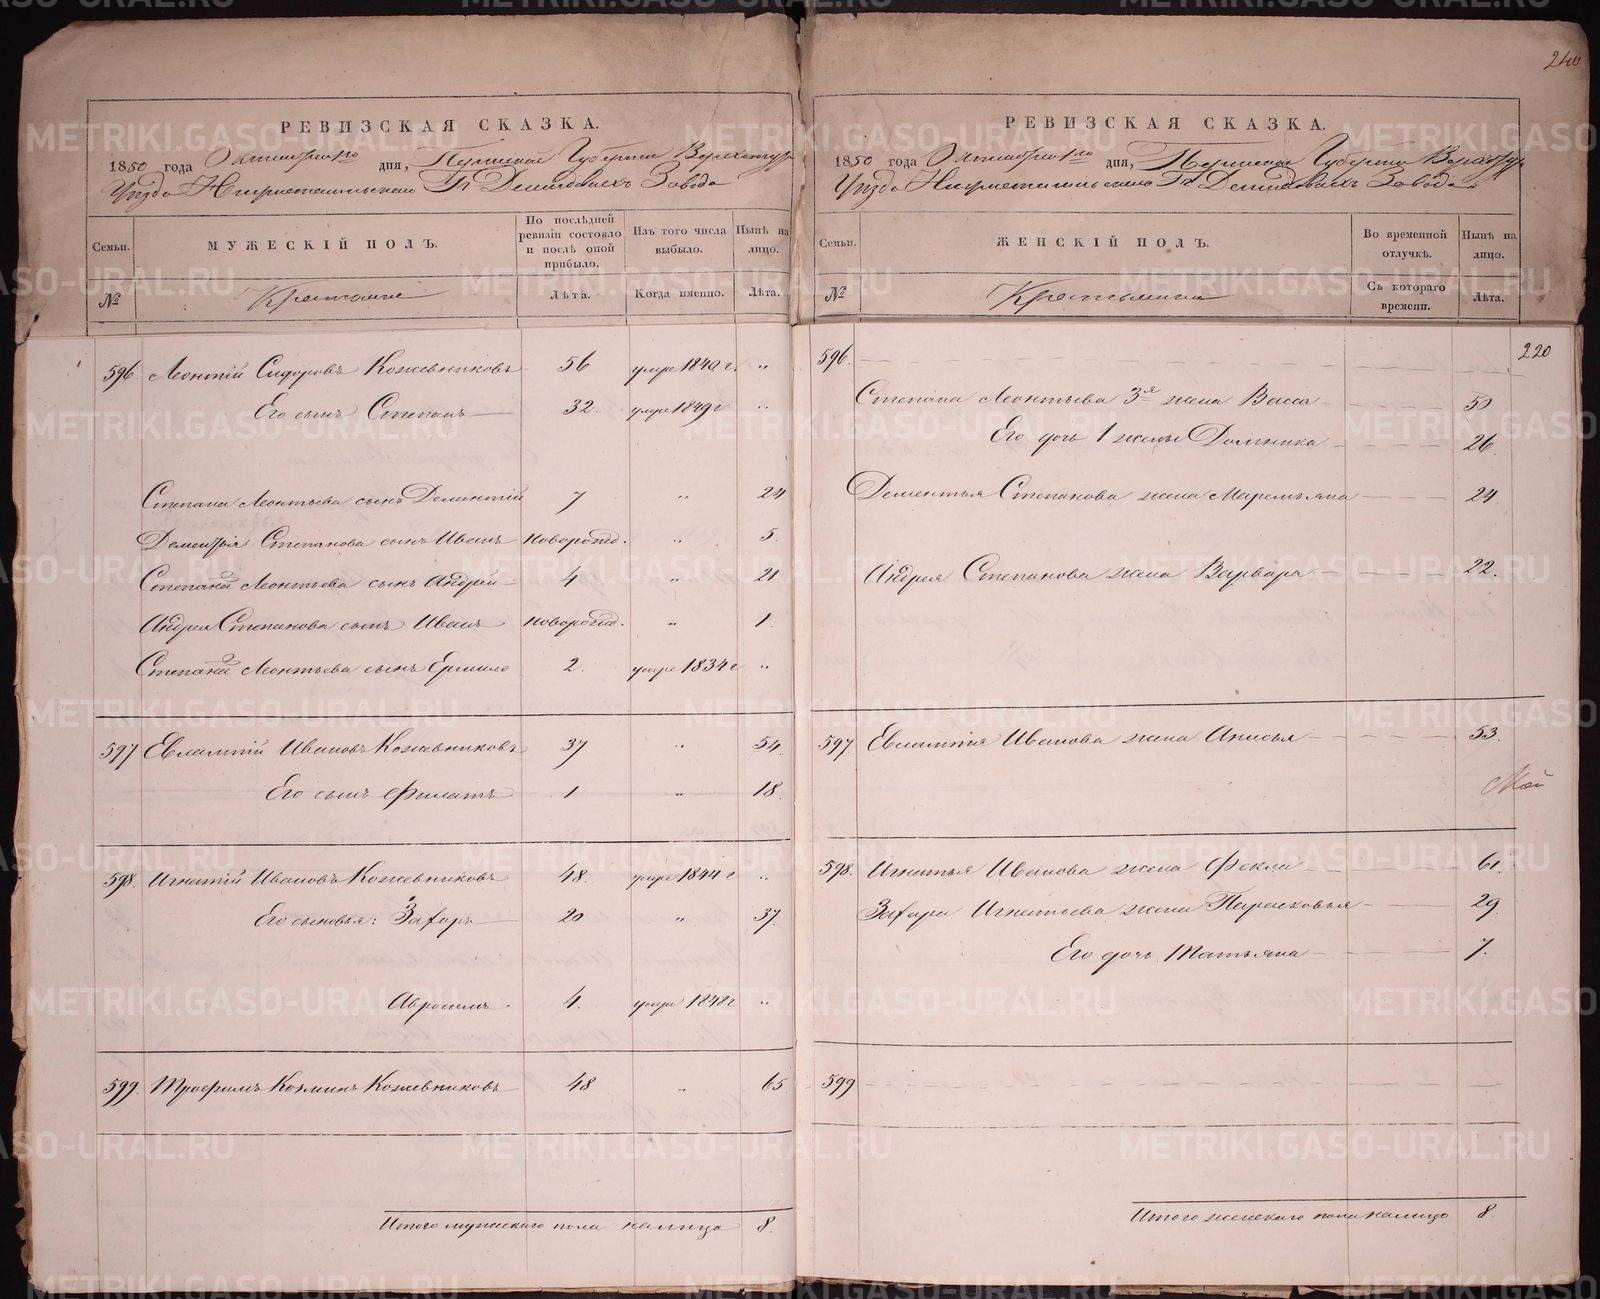 240
РЕВИЗСКАЯ СКАЗКА.
1850 года Октября дня, Пермской Губернии Верхотур
Уѣзда Нижнетагильскаго Гг. Демидовыхъ Завода
Семьи.
МУЖЕСКІЙ ПОЛЪ.
По послѣдней ревизіи состояло и послѣ оной прибыло.
Изъ того числа выбыло.
Нынѣ на лицо.
№
Крестьяне
Лѣта.
Когда именно.
Лѣта.
596 Леонтій Сидоровъ Кожевниковъ 56 умре 1840 г. "
Его сынъ Степанъ 32. умре 1849 г "
Степана Леонтьева сынъ Дементій 7 " 24
Дементья Степанова сынъ Иванъ новорожд. " 5.
Степана 2 Леонтьева сынъ Андрей 4 " 21
Андрея Степанова сынъ Иванъ новорожд. " 1.
Степана 2 Леонтьева сынъ Ермило 2. умре 1834 г "
597 Евлампій Ивановъ Кожевниковъ 37 " 54.
Его сынъ Филатъ 1 " 18.
598. Игнатій Ивановъ Кожевниковъ 48. умре 1844 г "
Его сыновья: Захаръ 20 " 37.
Авросимъ 4. умре 1848 г "
599. Трофимъ Козминъ Кожевниковъ 48 " 65.
Итого мужескаго пола налицо 8.
РЕВИЗСКАЯ СКАЗКА.
1850 года Октября дня, Пермской Губерніи Верхотур
Уѣзда Нижнетагильскаго Гг. Демидовыхъ Завода
Семьи.
ЖЕНСКІЙ ПОЛЪ.
Во временной отлучкѣ.
Нынѣ на лицо.
№
Крестьянки
Съ котораго времени.
Лѣта.
220
596.
Степана Леонтьева 3я жена Васса 50
Его дочь 1 жены Домника 26.
Дементья Степанова жена Маремьяна 24
Андрея Степанова жена Варвара 22.
597 Евлампія Иванова жена Анисья 53.
598. Игнатья Иванова жена Фекла 61.
Захара Игнатьева жена Парасковья 29
Его дочь Татьяна 7.
599
Итого женскаго пола налицо 8.
METRIKI.GASO-URAL.RU